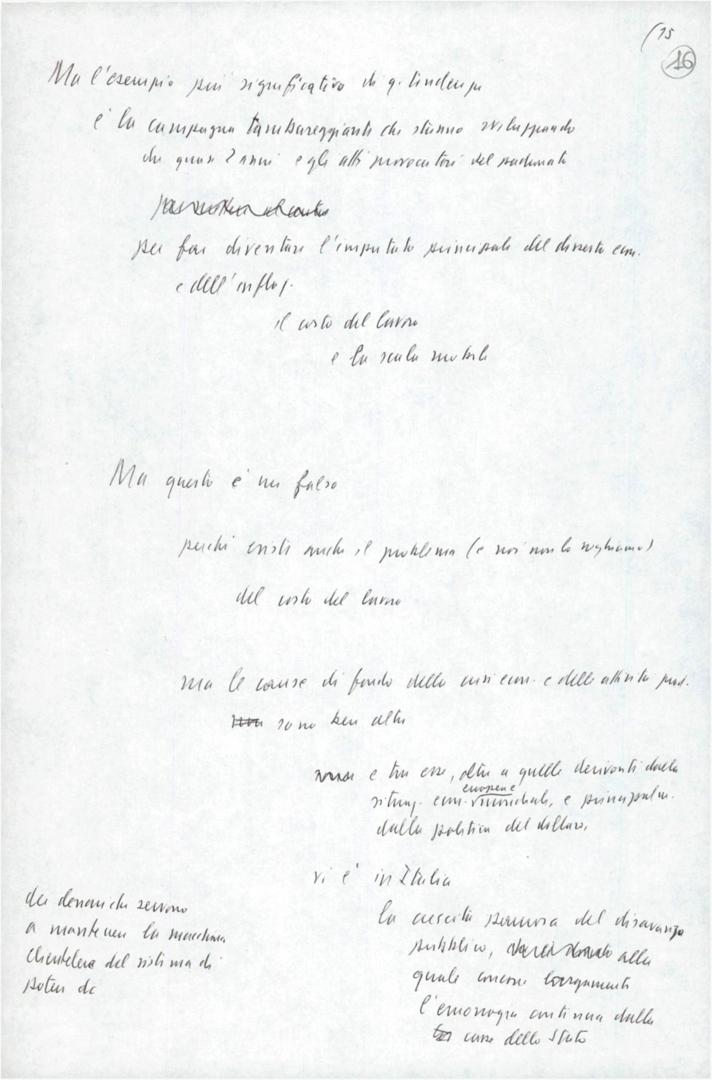 (15
16
Ma l'esempio più significativo di q. tendenza
è la campagna tambureggiante che stanno sviluppando
da quasi 2 anni e gli atti provocatori del padronato
per far diventare l'imputato principale del dissesto econ.
e dell'inflaz.
il costo del lavoro
e la scala mobile
Ma questo è un falso
perché esiste anche il problema (e noi non lo neghiamo)
del costo del lavoro
ma le cause di fondo della crisi econ. e delle attività prod.
sono ben altre
e tra esse, oltre a quelle derivanti dalla
situaz. econ. europea mondiale, e principalm.
dalla politica del dollaro,
vi è in Italia
la crescita paurosa del disavanzo
pubblico, alla
quale concorre largamente
l'emorragia continua dalle
casse dello Stato
dei denari che servono
a mantenere la macchina
clientelare del sistema di
potere dc